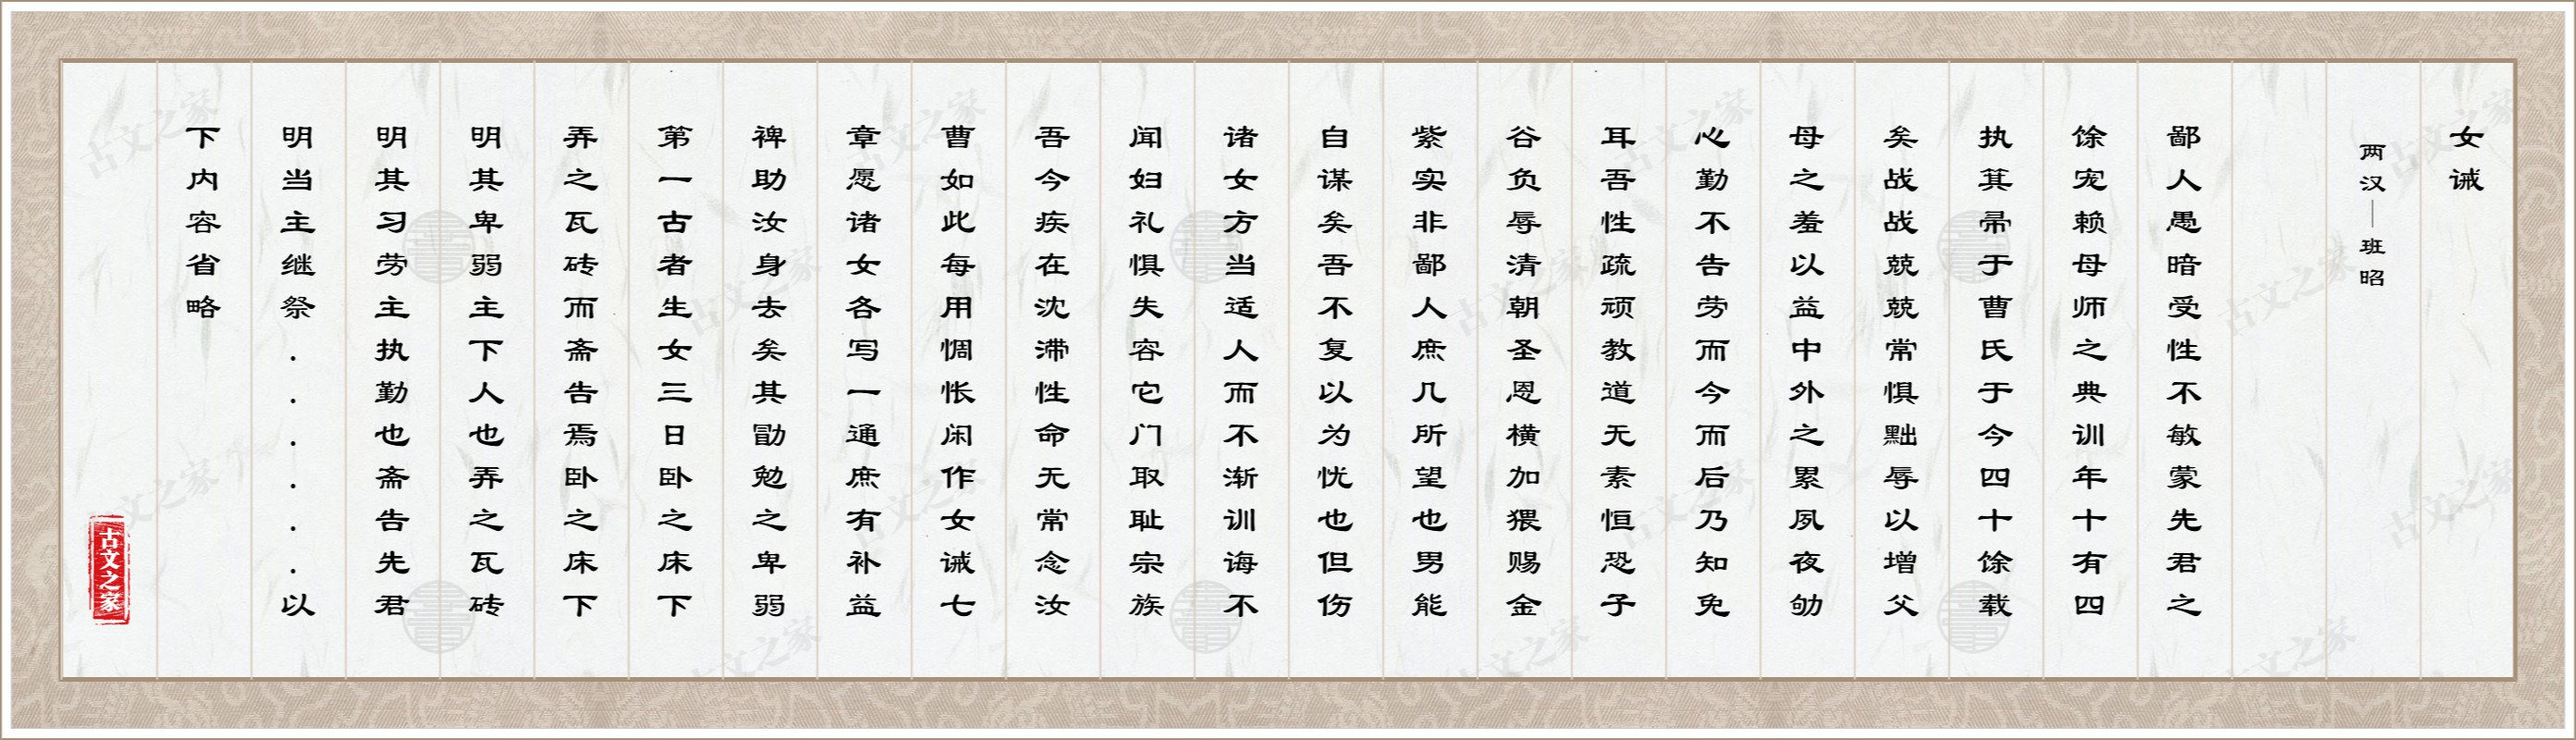 女诫
两汉—班昭
鄙人愚暗受性不敏蒙先君之
馀宠赖母师之典训年十有四
执箕帚于曹氏于今四十馀载
矣战战兢兢常惧黜辱以增父
母之羞以益中外之累夙夜劬
心勤不告劳而今而后乃知免
耳吾性疏顽教道无素恒恐子
谷负辱清朝圣恩横加猥赐金
紫实非鄙人庶几所望也男能
自谋矣吾不复以为忧也但伤
诸女方当适人而不渐训诲不
闻妇礼惧失容它门取耻宗族
吾今疾在沈滞性命无常念汝
曹如此每用惆怅闲作女诫七
章愿诸女各写一通庶有补益
裨助汝身去矣其勖勉之卑弱
第一古者生女三日卧之床下
弄之瓦砖而斋告焉卧之床下
明其卑弱主下人也弄之瓦砖
明其习劳主执勤也斋告先君
明当主继祭......以
下内容省略
古文之家